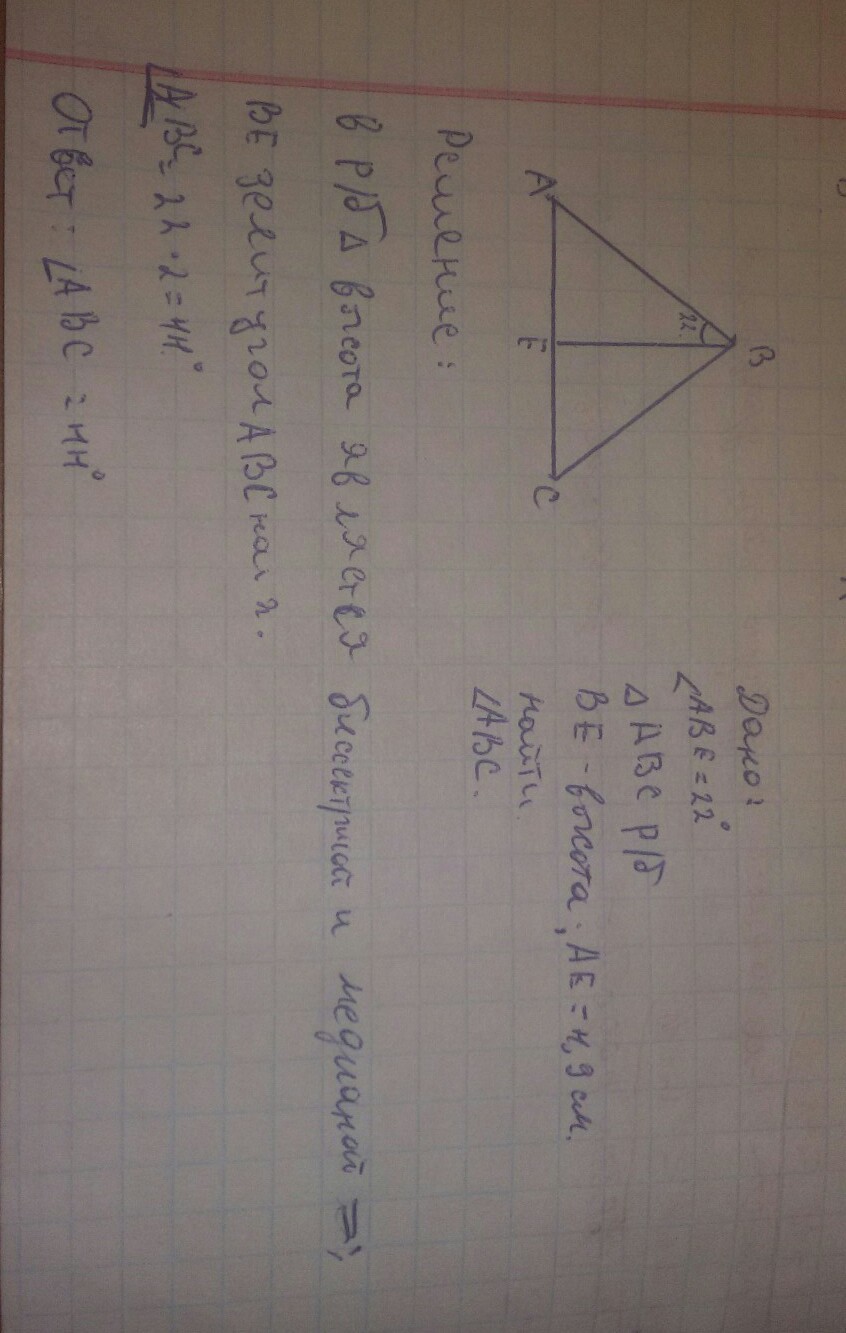 B
22.
A
E
C
Дано:
∠ABE=22°
Δ ABC р/б
BE - высота; AE = 4,9 см.
найти
∠ABC.
Решение:
в р/б Δ высота является биссектрисой и медианой =>
BE делит угол ABC на 2.
∠ABC = 22·2=44°
Ответ: ∠ABC = 44°